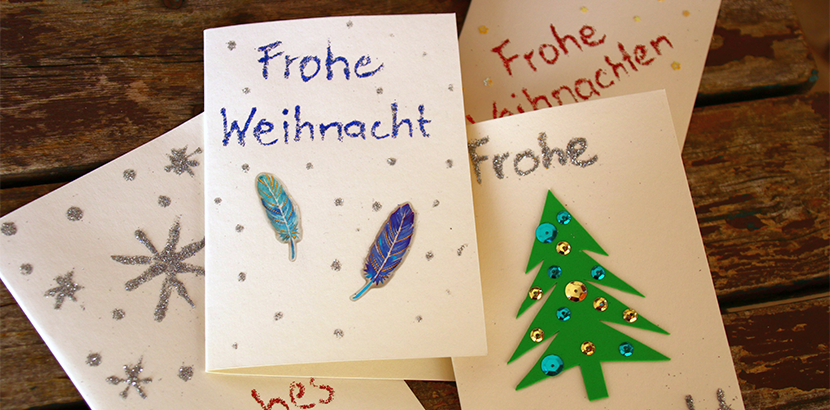 Frohe
Weihnacht
Frohe
Weihnachten
Frohe
hes